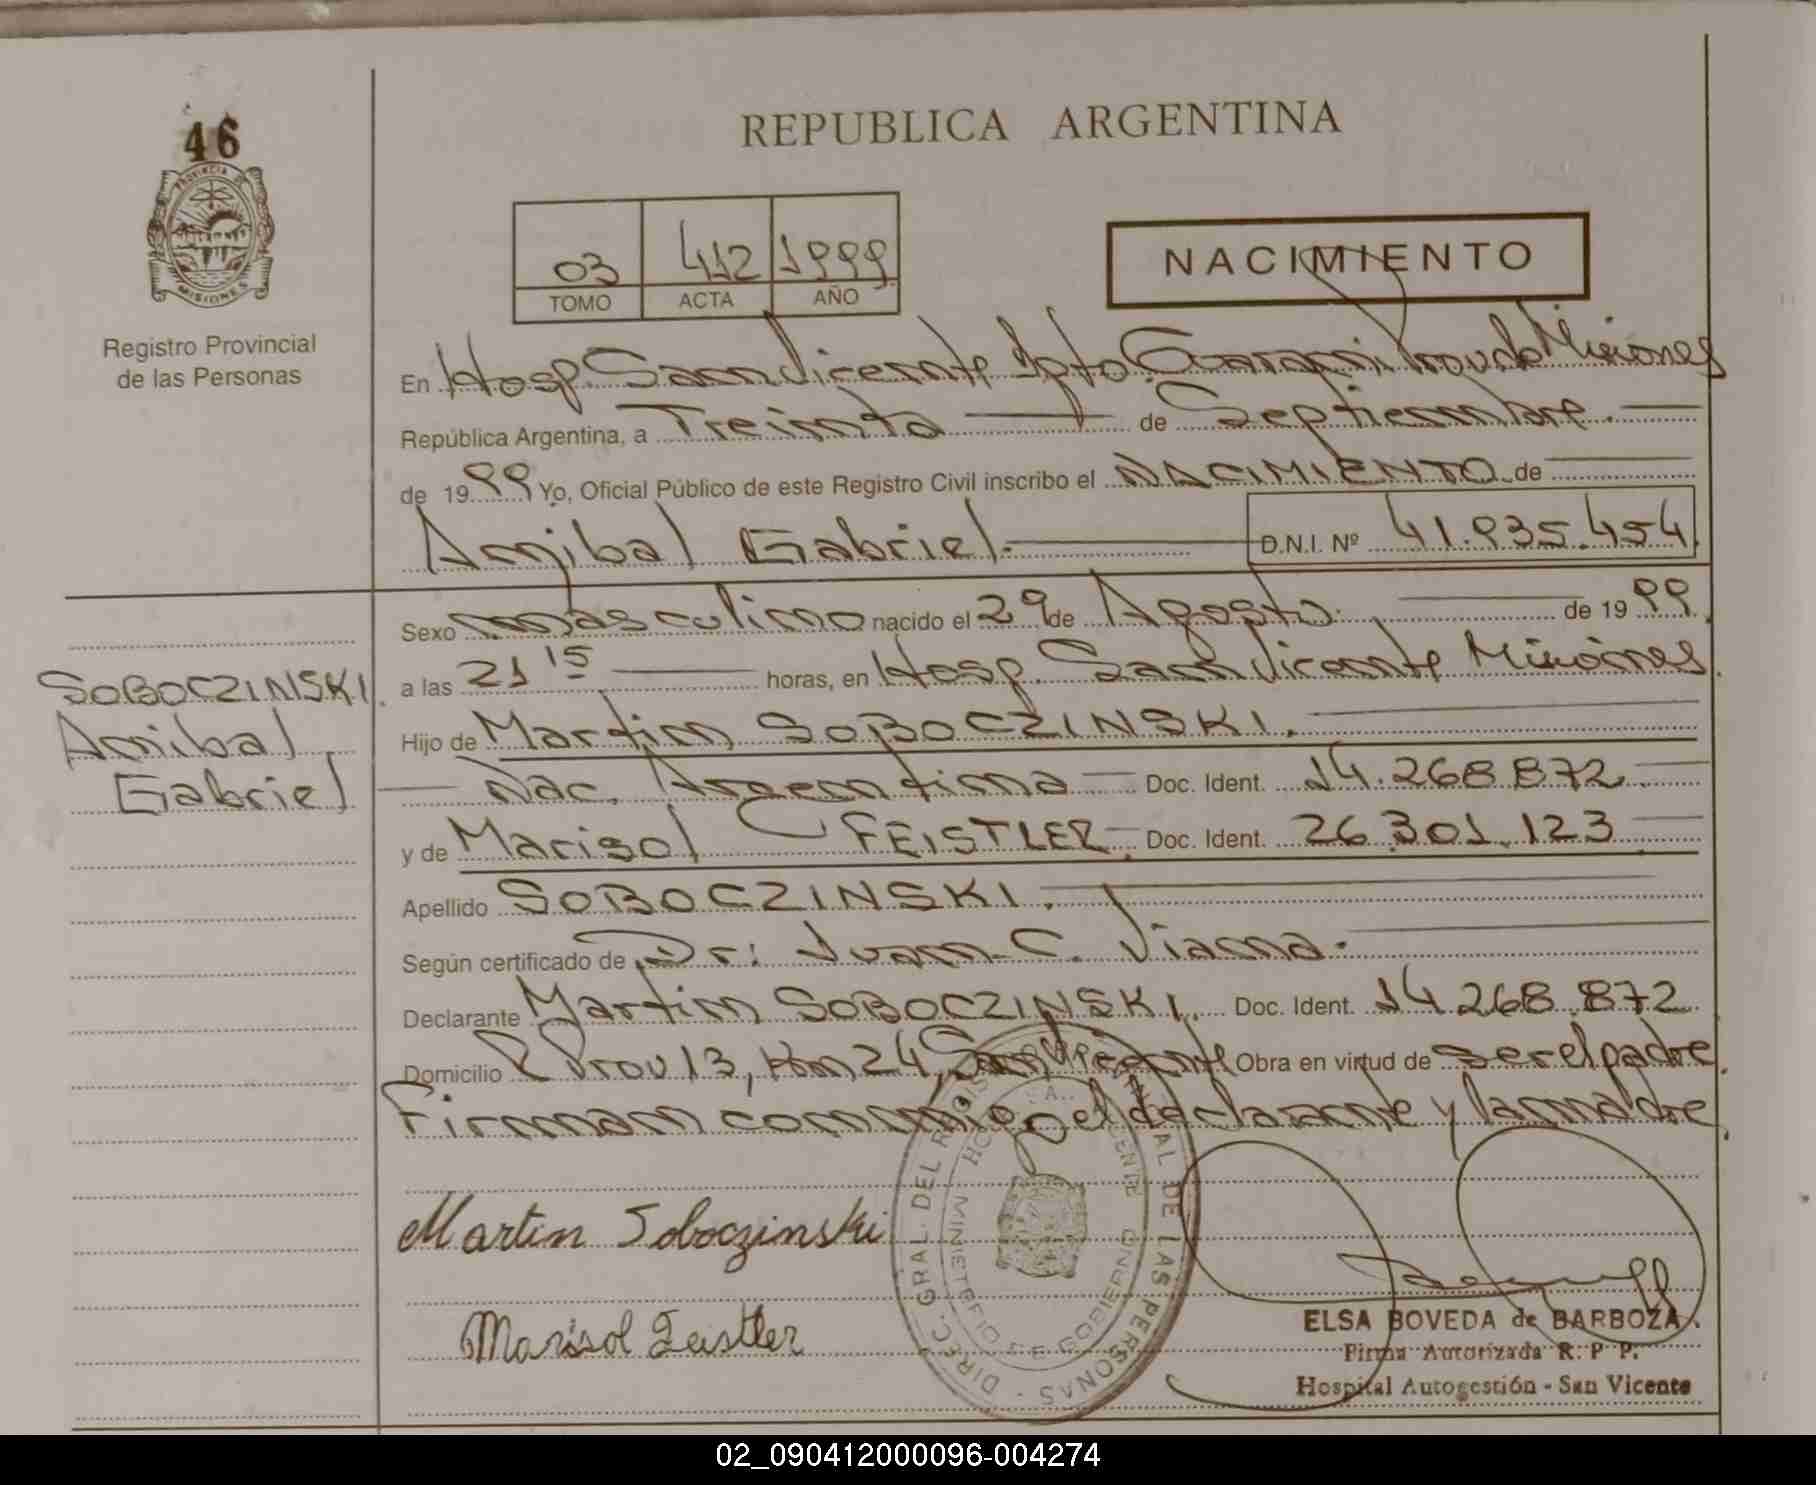 46
PROVINCIA DE
MISIONES
Registro Provincial
de las Personas
REPUBLICA ARGENTINA
03 412 1999
TOMO ACTA AÑO
NACIMIENTO
En Hosp. San Vicente Dpto. Guarani Prov de Misiones
República Argentina, a Treinta de Septiembre.
de 1999 Yo, Oficial Público de este Registro Civil inscribo el NACIMIENTO de
Anibal Gabriel. D.N.I. Nº 41.935.454
Sexo masculino nacido el 29 de Agosto. de 1999.
SOBOCZINSKI
Anibal
Gabriel
a las 21 15 horas, en Hosp. San Vicente Misiones.
Hijo de Martin SOBOCZINSKI.
Nac. Argentina Doc. Ident. 14.268.872
y de Marisol FEISTLER. Doc. Ident. 26.301.123
Apellido SOBOCZINSKI.
Según certificado de Dr: Juan C. Viana.
Declarante Martin SOBOCZINSKI. Doc. Ident. 14.268.872
Domicilio R Prov 13, Km 24, San Vicente Obra en virtud de ser el padre.
Firman conmigo el declarante y la madre.
Martin Soboczinski
Marisol Feistler
DIREC. GRAL. DEL DE LAS PERSONAS
MINISTERIO DE GOBIERNO
ELSA BOVEDA de BARBOZA
Firma Autorizada R. P. P.
Hospital Autogestión - San Vicente
02_090412000096-004274